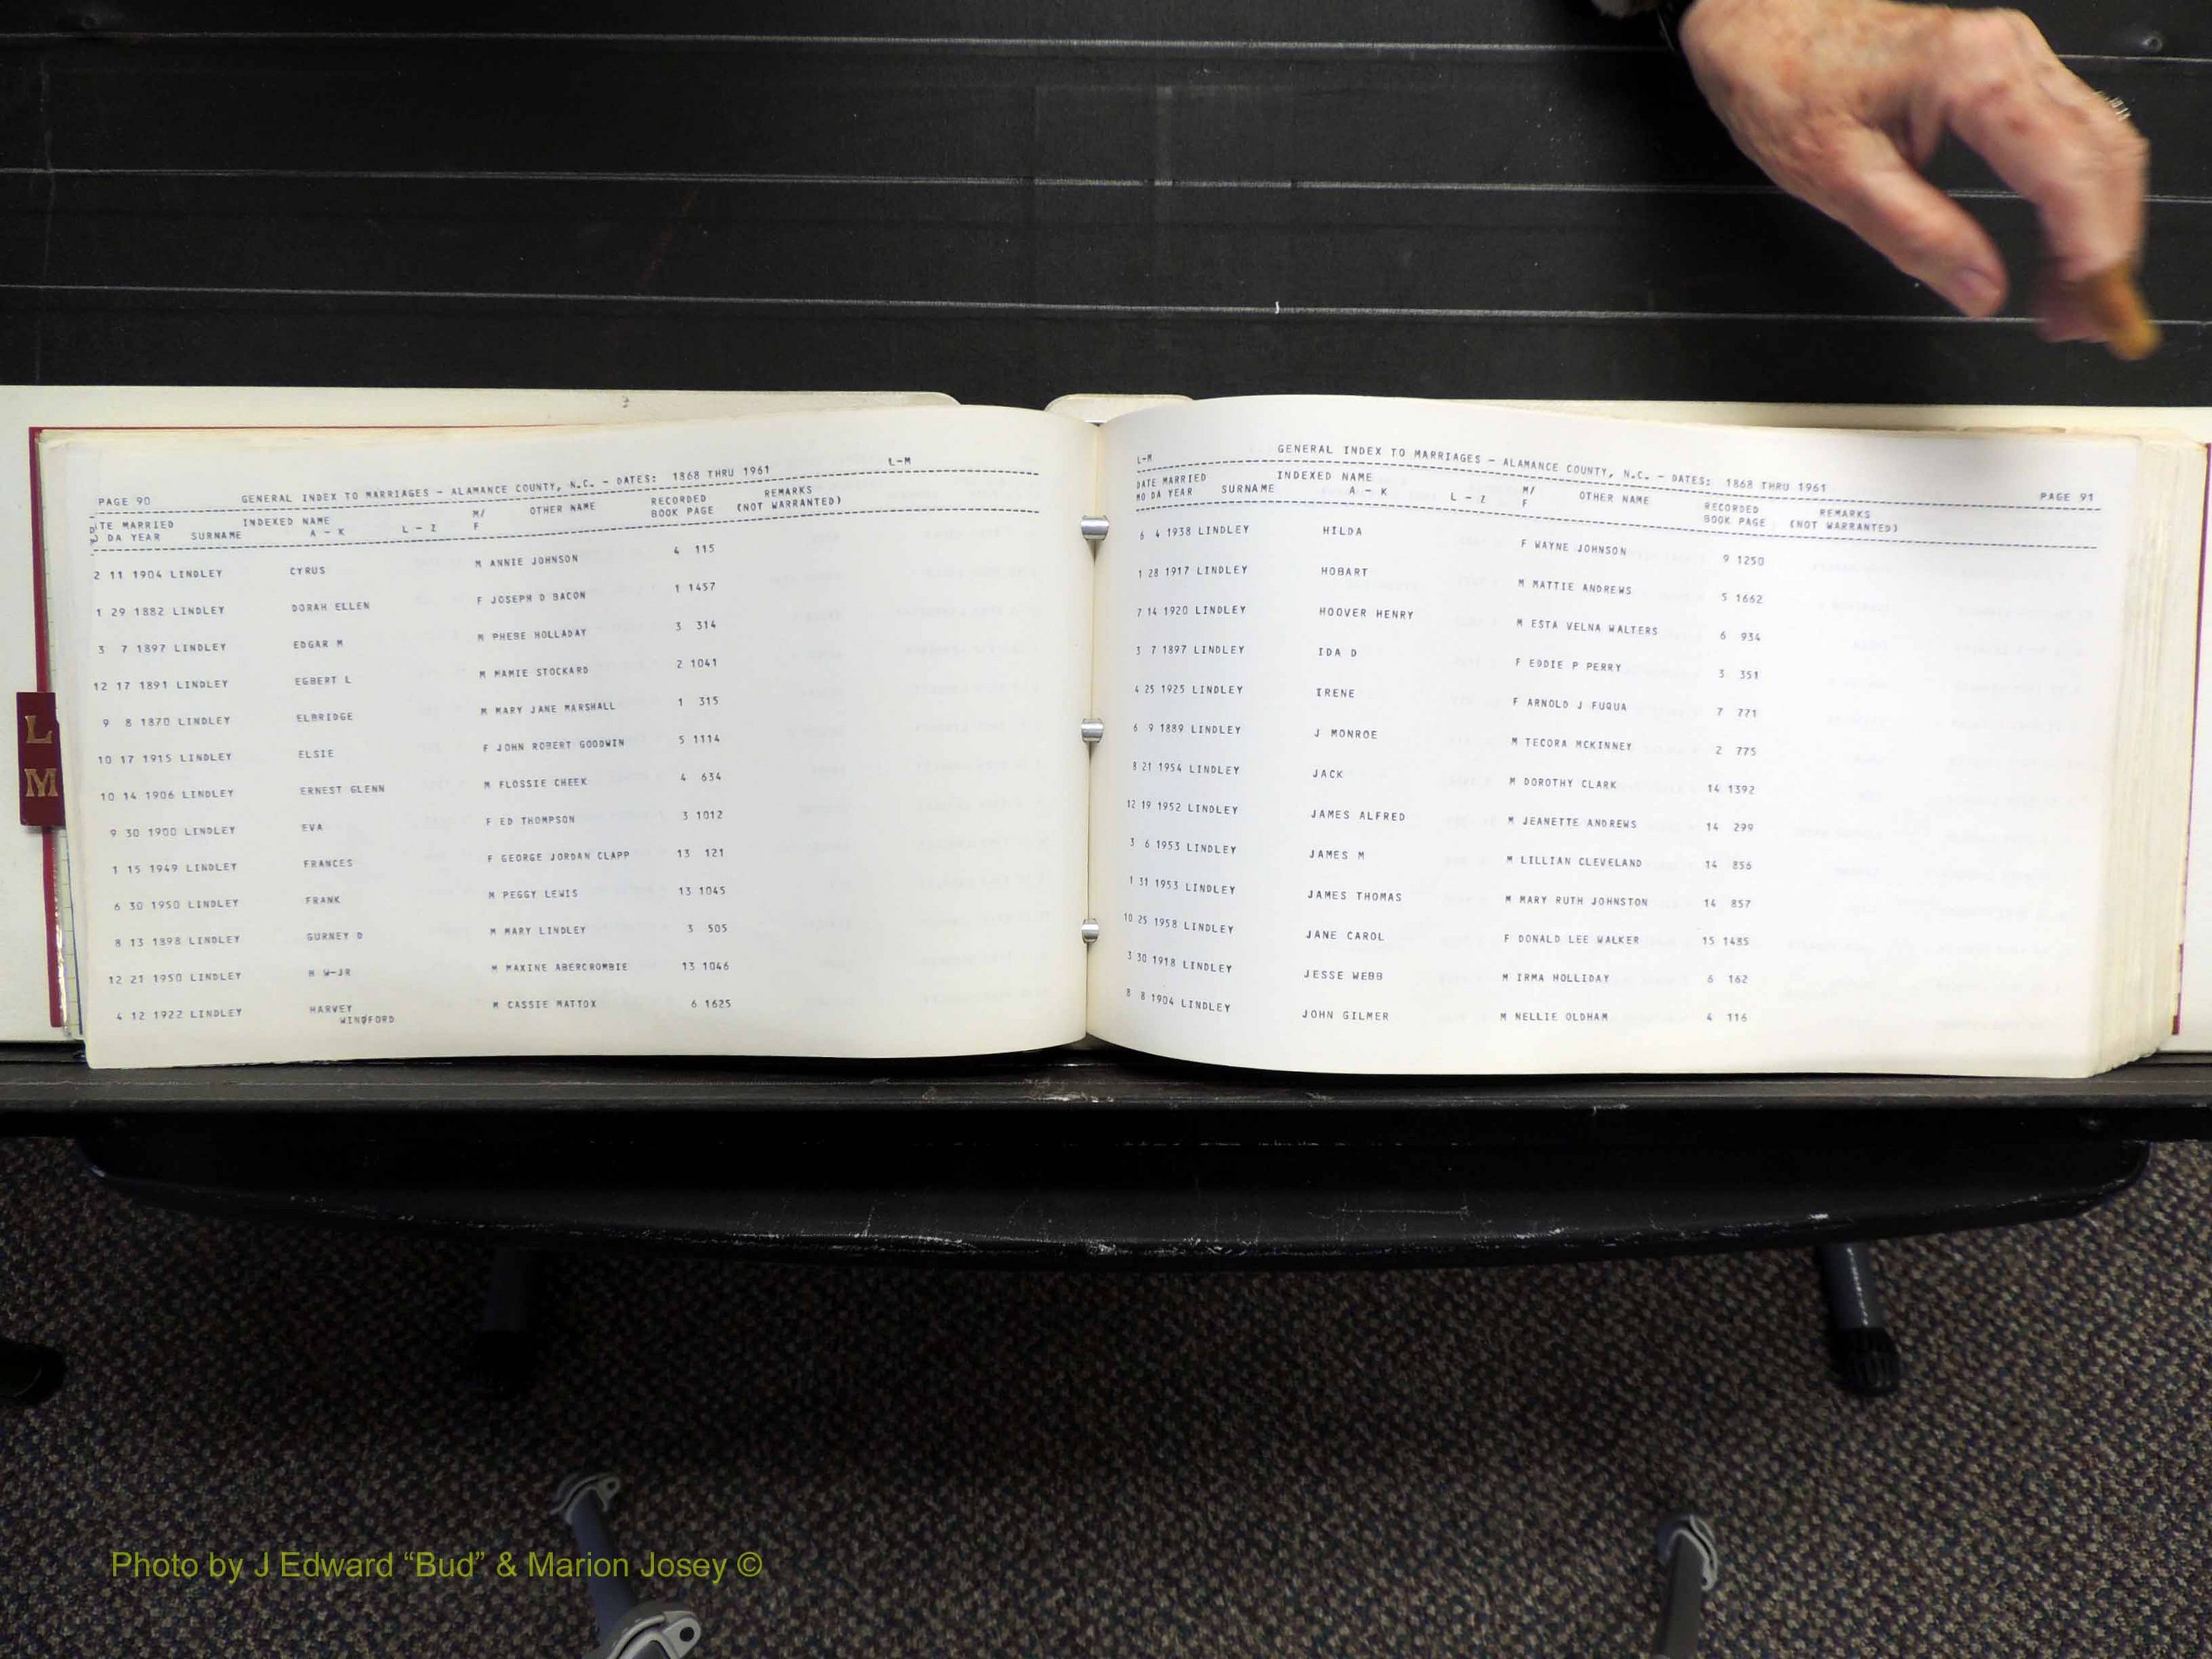 L
M
PAGE 90 GENERAL INDEX TO MARRIAGES - ALAMANCE COUNTY, N.C. - DATES: 1868 THRU 1961 L-M
DATE MARRIED INDEXED NAME M/ OTHER NAME RECORDED REMARKS
MO DA YEAR SURNAME A - K L - Z F BOOK PAGE (NOT WARRANTED)
2 11 1904 LINDLEY CYRUS M ANNIE JOHNSON 4 115
1 29 1882 LINDLEY DORAH ELLEN F JOSEPH D BACON 1 1457
3 7 1897 LINDLEY EDGAR M M PHEBE HOLLADAY 3 314
12 17 1891 LINDLEY EGBERT L M MAMIE STOCKARD 2 1041
9 8 1870 LINDLEY ELBRIDGE M MARY JANE MARSHALL 1 315
10 17 1915 LINDLEY ELSIE F JOHN ROBERT GOODWIN 5 1114
10 14 1906 LINDLEY ERNEST GLENN M FLOSSIE CHEEK 4 634
9 30 1900 LINDLEY EVA F ED THOMPSON 3 1012
1 15 1949 LINDLEY FRANCES F GEORGE JORDAN CLAPP 13 121
6 30 1950 LINDLEY FRANK M PEGGY LEWIS 13 1045
8 13 1898 LINDLEY GURNEY D M MARY LINDLEY 3 505
12 21 1950 LINDLEY H W-JR M MAXINE ABERCROMBIE 13 1046
4 12 1922 LINDLEY HARVEY M CASSIE MATTOX 6 1625
WINDFORD
L-M GENERAL INDEX TO MARRIAGES - ALAMANCE COUNTY, N.C. - DATES: 1868 THRU 1961 PAGE 91
DATE MARRIED INDEXED NAME M/ OTHER NAME RECORDED REMARKS
MO DA YEAR SURNAME A - K L - Z F BOOK PAGE (NOT WARRANTED)
6 4 1938 LINDLEY HILDA F WAYNE JOHNSON 9 1250
1 28 1917 LINDLEY HOBART M MATTIE ANDREWS 5 1662
7 14 1920 LINDLEY HOOVER HENRY M ESTA VELNA WALTERS 6 934
3 7 1897 LINDLEY IDA D F EDDIE P PERRY 3 351
4 25 1925 LINDLEY IRENE F ARNOLD J FUQUA 7 771
6 9 1889 LINDLEY J MONROE M TECORA MCKINNEY 2 775
8 21 1954 LINDLEY JACK M DOROTHY CLARK 14 1392
12 19 1952 LINDLEY JAMES ALFRED M JEANETTE ANDREWS 14 299
3 6 1953 LINDLEY JAMES M M LILLIAN CLEVELAND 14 856
1 31 1953 LINDLEY JAMES THOMAS M MARY RUTH JOHNSTON 14 857
10 25 1958 LINDLEY JANE CAROL F DONALD LEE WALKER 15 1485
3 30 1918 LINDLEY JESSE WEBB M IRMA HOLLIDAY 6 162
8 8 1904 LINDLEY JOHN GILMER M NELLIE OLDHAM 4 116
Photo by J Edward “Bud” & Marion Josey ©